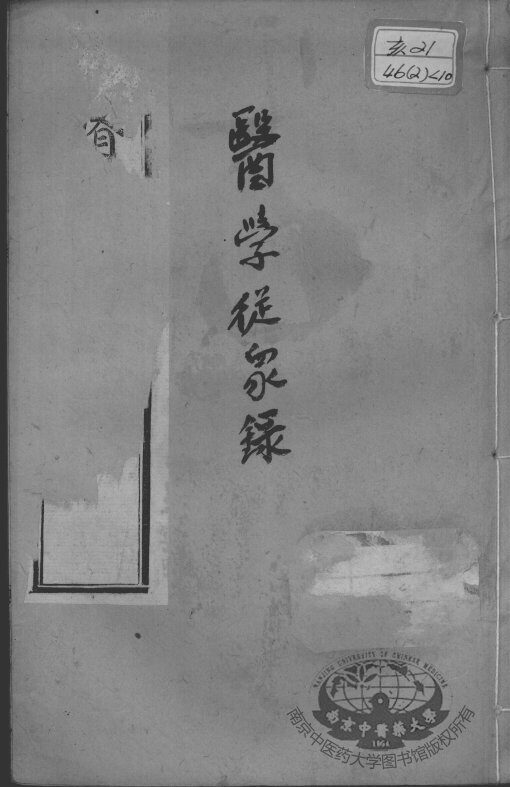 玄21
46(2)<10
醫學從衆錄
NANJING UNIVERSITY OF CHINESE MEDICINE
南京中醫藥大學
1954
南京中医药大学图书馆版权所有